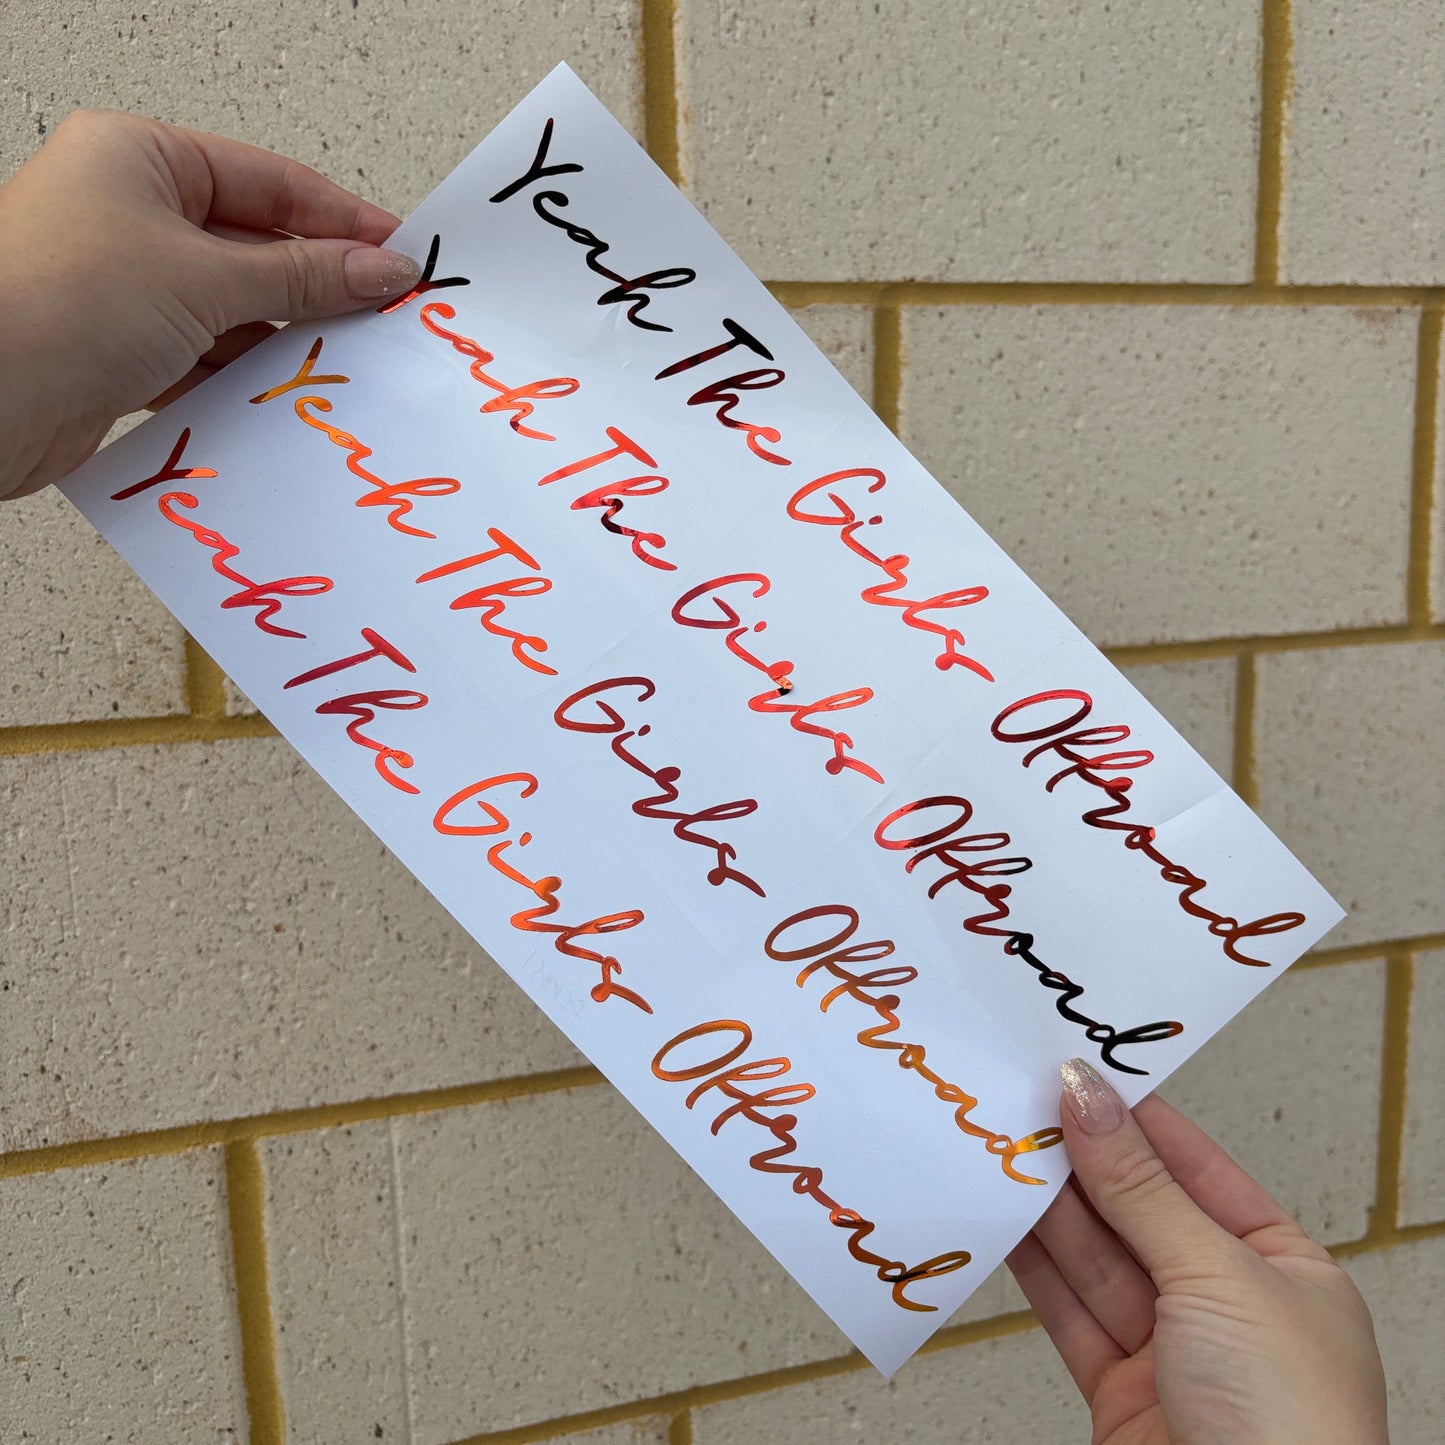 Yeah The Girls Offroad
Yeah The Girls Offroad
Yeah The Girls Offroad
Yeah The Girls Offroad